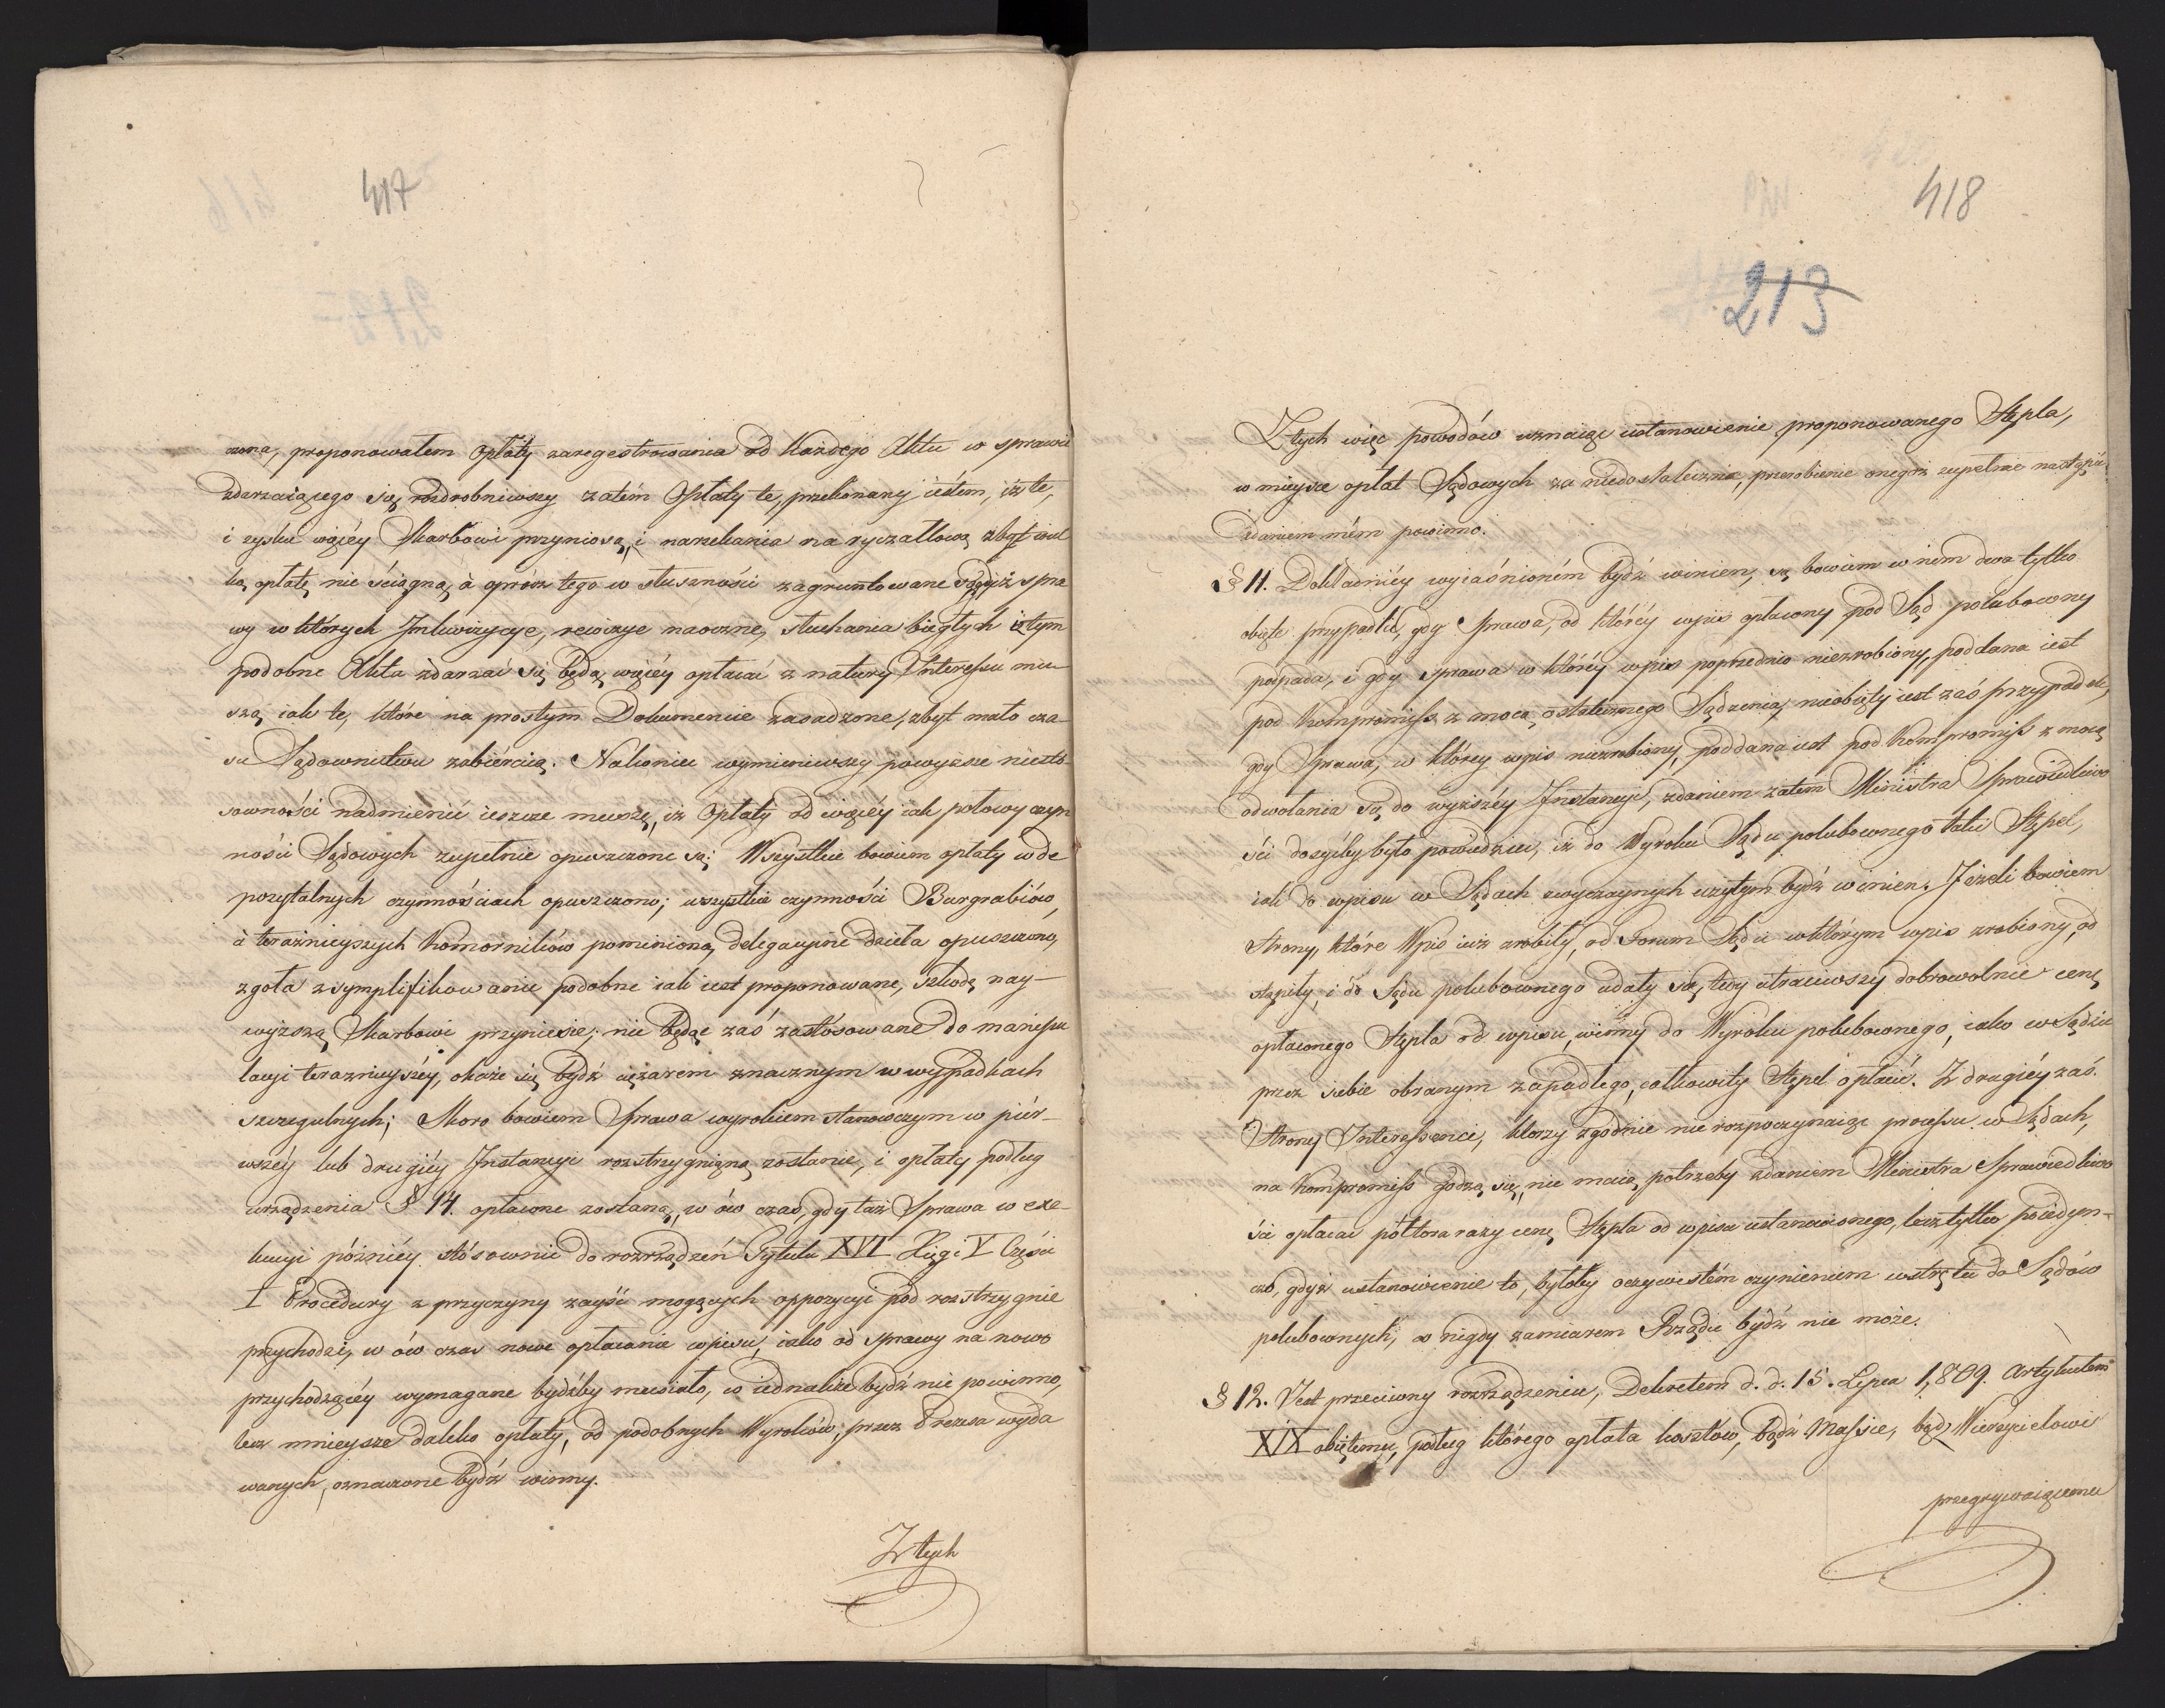 417
zoną, proponowałem Opłaty zaregestrowania od Każdego Aktu w sprawie
zdarzaiącego się rozdrobniwszy zatém Opłaty te, przekonany iestem, iż te,
i zysku więcéy Skarbowi przyniosą, i narzekania na ryczałtową zbyt wiel
ką opłatę nie ściągną, à oprócz tego w słuszności zagruntowane są, gdyż spra
wy w których Inkwizycye, rewizye naoczne, słuchania biegłych i tym
podobne Akta zdarzać się będą, więcéy opłacać z natury Interessu mu
szą iak te, które na prostym Dokumencie zasadzone, zbyt mało cza
su Sądownictwu zabieraią. Nakoniec wymieniwszy powyższe niesto
sowności nadmienić ieszcze muszę, iż Opłaty od więcéy iak połowy czyn
ności Sądowych zupełnie opuszczone są; Wszystkie bowiem opłaty w de
pozytalnych czynnościach opuszczono; wszystkie czynności Burgrabiów,
à teraźnieyszych Komorników pominiono, delegacyine dzieła opuszczono,
zgoła zsymplifikowanie podobne iak iest proponowane, szkodę nay-
wyższą Skarbowi przyniesie; nie będąc zaś zastósowane do manipu
lacyi teraznieyszéy, okaże się bydź ciężarem znacznym w wypadkach
szczegulnych; Skoro bowiem Sprawa wyrokiem stanowczym w piér-
wszéy lub drugiéy Instancyi rozstrzygniąną zostanie, i opłaty podług
urządzenia § 14. opłacone zostaną, w ów czas, gdy taż Sprawa w exe-
kucyi póżniéy stósownie do rozrządzeń Tytułu XVI Xięgi V Części
I Procedury z przyczyny zayść mogących oppozycyi pod rozstrzygnie
przychodzi, w ów czas nowe opłacania wpisu, iako od sprawy na nowo
przychodzącéy wymagane bydźby musiało, co iednakże bydź nie powinno,
lecz mnieysze daleko opłaty, od podobnych Wyroków, przez Prezesa wyda
wanych, oznaczone bydź winny.
Z tych
418
213
Z tych więc powodów uznaiąc ustanowienie proponowanego Stępla,
w mieysce opłat Sądowych za niedostateczne, przerobienie onegoż zupełnie nastąpić
zdaniem mém powinno.
§ 11. Dokładniéy wyiaśnioném bydź winien, są bowiem w nim dwa tylko
obięte przypadki, gdy Sprawa, od któréy wpis opłacony pod Sąd polubowny
podpada, i gdy sprawa w któréy wpis poprzednio niezrobiony, poddana iest
pod Kompromiss z mocą ostatecznego Sądzenia, nieobięty iest zaś przypadek,
gdy Sprawa, w którey wpis niezrobiony, poddana iest pod Kompromiss z mocą
odwołania się do wyższéy Instancyi, zdaniem zatem Ministra Sprawiedliwo
ści dosyćby było powiedzieć, iż do Wyroku Sądu polubownego taki Stępel,
iaki do wpisu w Sądach zwyczaynych użytym bydź winien. Jeżeli bowiem
Strony, które Wpis iuż zrobiły, od Forum Sądu w którym wpis zrobiony, od
stąpiły i do Sądu polubownego udały się, tedy utraciwszy dobrowolnie cenę
opłaconego Stępla od wpisu, winny do Wyroku polubownego, iako w Sądzie
przez siebie obranym zapadłego, całkowity Stępel opłacić. Z drugiéy zaś
Strony Interessenci, którzy zgodnie nie rozpoczynaiąc processu w Sądach,
na Kompromiss godzą się, nie maią potrzeby zdaniem Ministra Sprawiedliwo
ści opłacać półtora razy cenę Stępla od wpisu ustanowionego, lecz tylko poiedyn-
czo, gdyż ustanowienie to, byłoby oczywistém czynieniem wstrętu do Sądów
polubownych, co nigdy zamiarem Rządu bydź nie może.
§ 12. Jest przeciwny rozrządzeniu, Dekretem d. d. 15. Lipca 1,809. Artykułem
XIX obiętemu, podług którego opłata kosztów, bądź Massie, bądź Wierzycielowi
przegrywaiącemu